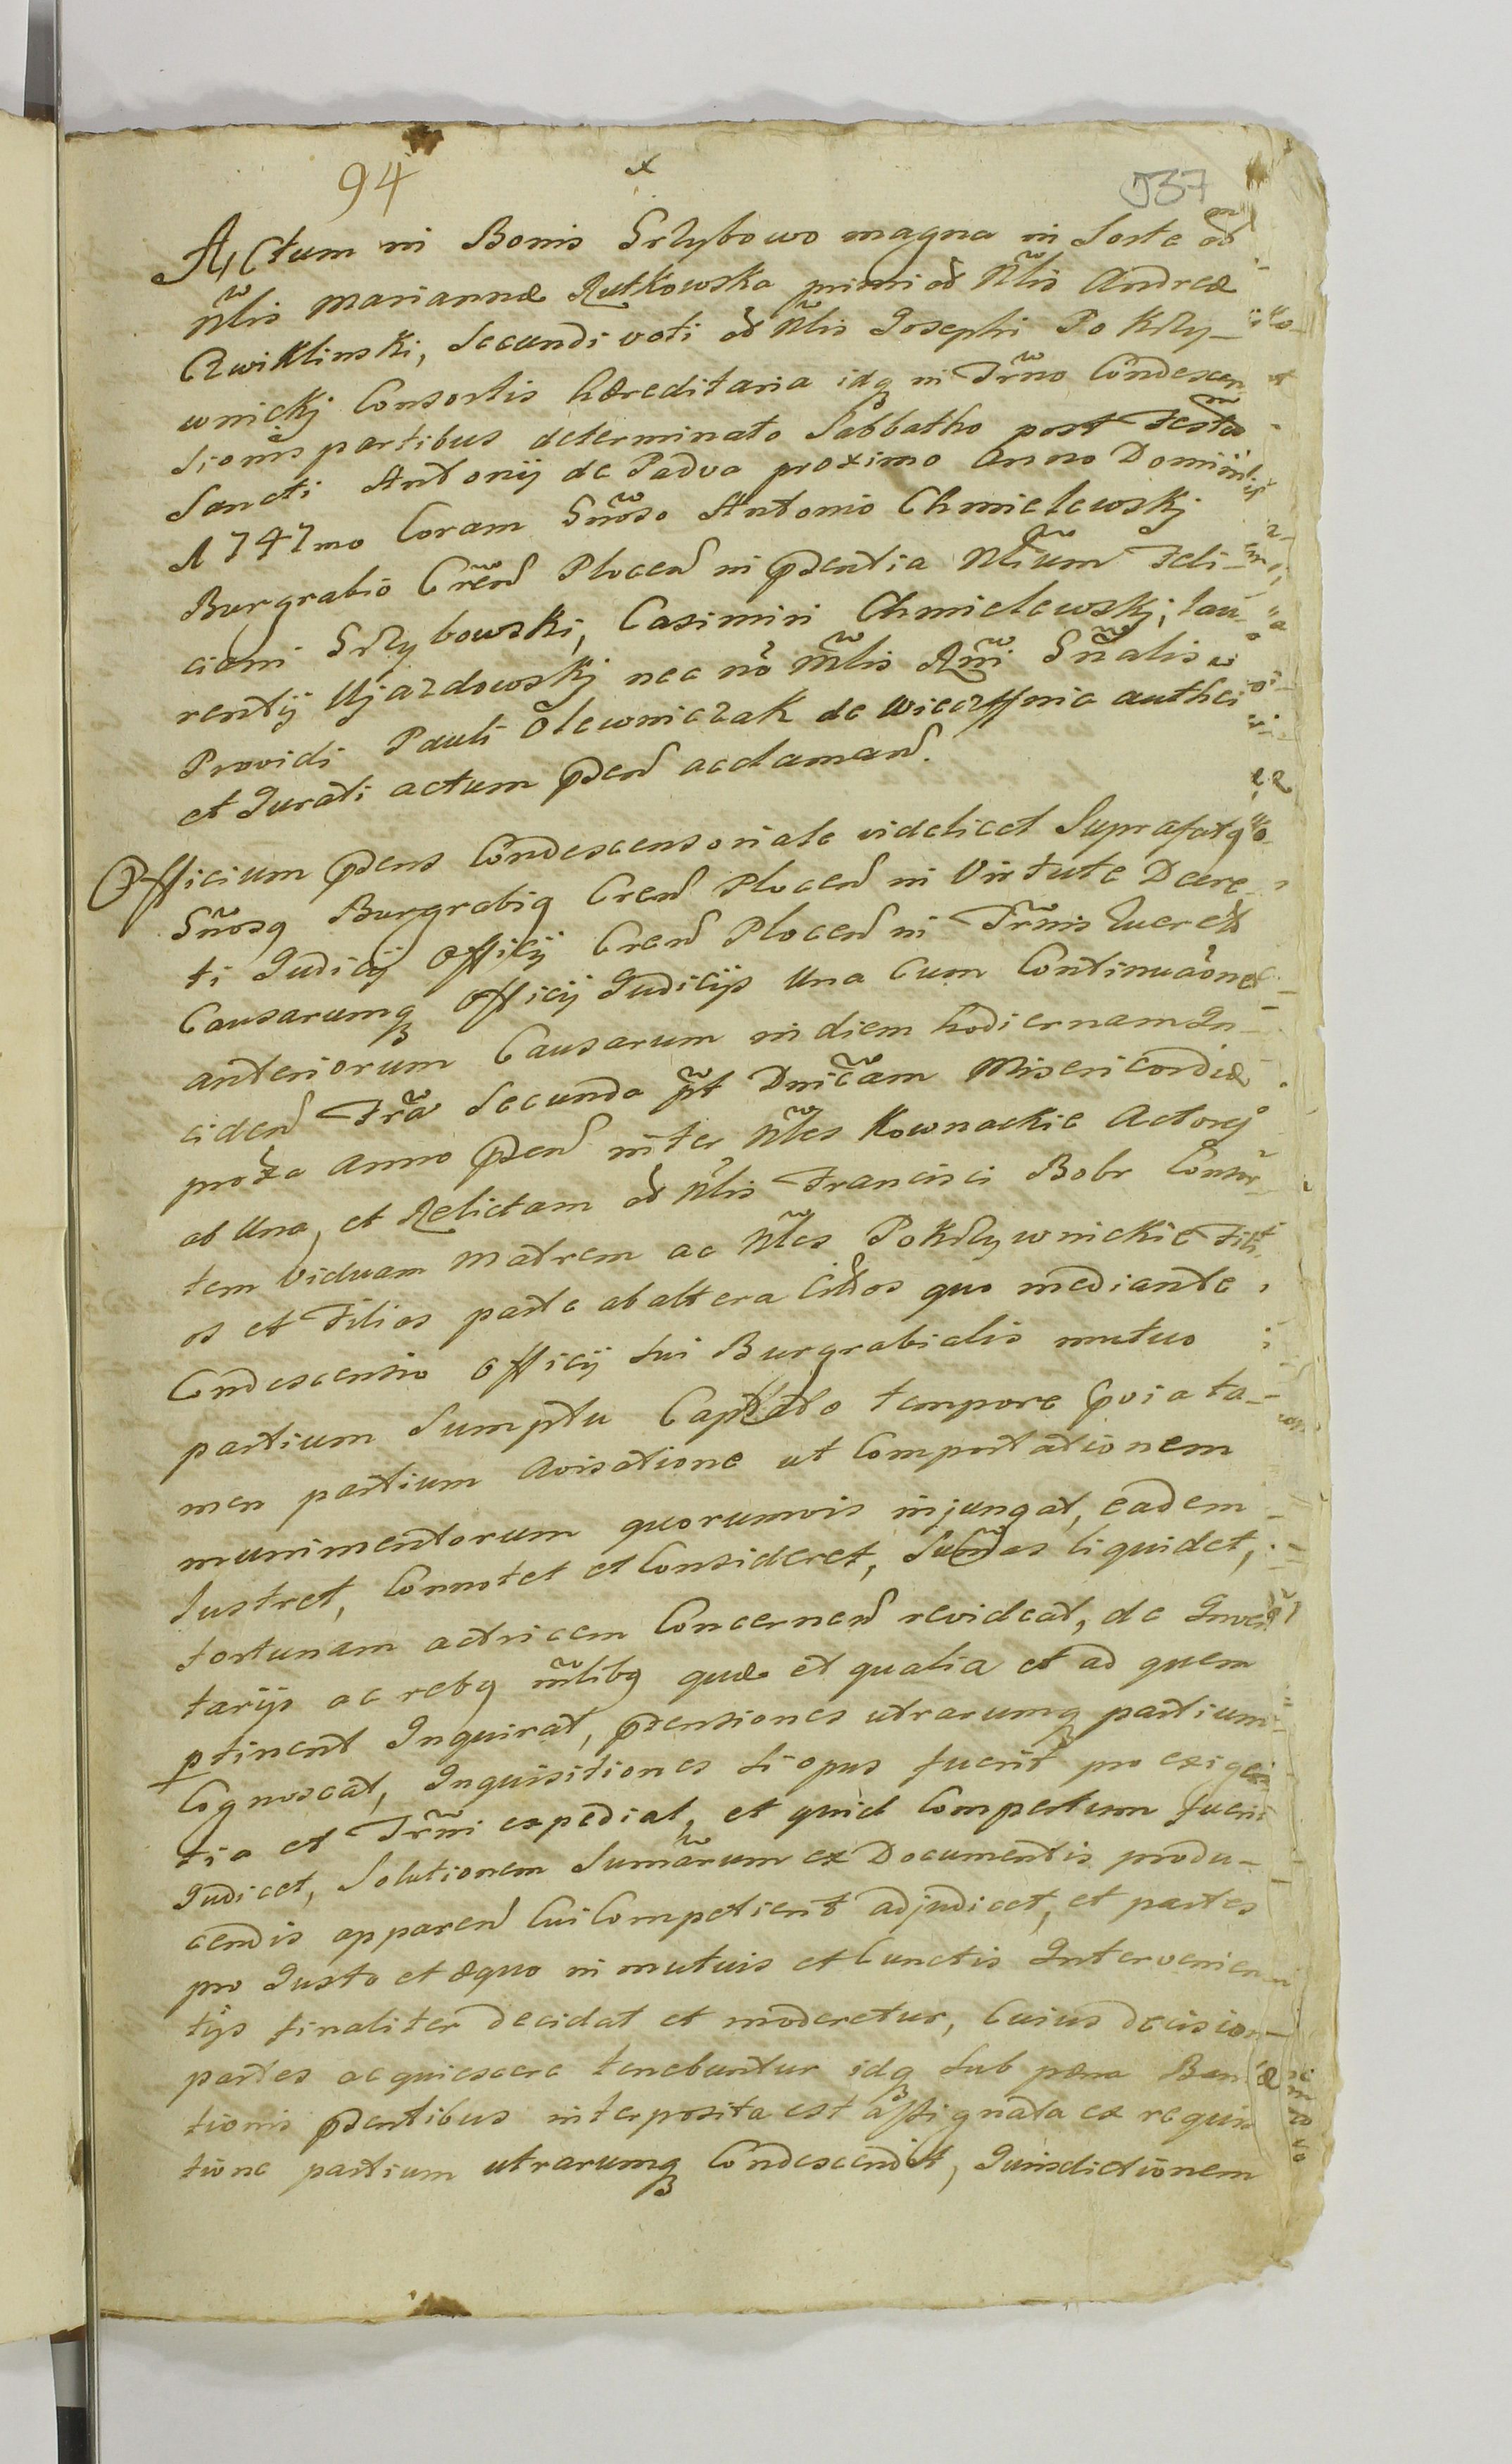 94
x
537
Actum in Bonis Srzybowo magna in Sorte od
Nlis Mariannæ Rutkowska primi od Nlis Andreæ
Cwiklinski, Secundi voti od Nlis Josephi Pokrzy-
wnickj Consortis hæreditaria idq in Trno Condescen
sionis partibus determinato Sabbatho post Festa
Sancti Antonij de Padva proximo Anno Domini
1747mo Coram Gnoso Antonio Chmielewskj
Burgrabio Cren Plocen in pdentia Nlium Feli-
ciani Srzybowski, Casimiri Chmielewskj, Lau-
rentij Ujazdowskj nec no Mlis Rmi Gnalis
Providi Pauli Olewniczak de Wieczffnia authci
et Jurati actum pden acclaman.
Officium pdens Condescensoriale videlicet Suprafatq
Gnosq Burgrabiq Cren Plocen in Virtute Decre-
ti Judicij Officij Cren Plocen in Trnis Querel
Causarumq Officij Judicijs una cum Continuaone
anteriorum Causarum in diem hodiernam In
ciden Fra Secunda pt Dnicam Misericordiæ
proxa Anno pden inter Nles Kownackie Actores
ab una, et Relictam od Nlis Francisci Bobr Consor
tem viduam Matrem ac Nles Pokrzywnickie Fili
os et Filias parte ab altera Citos quo mediante
Condescensio Officij sui Burgrabialis mutuo
partium Sumptu Captato tempore pvia ta-
men partium avisatione ut Comportationem
munimentorum quorumvis injungat, eadem
lustret, Connotet et Consideret, Sumas liquidet,
fortunam actricem Concernen revideat, de Inven
tarijs ac rebq mlibq quæ et qualia et ad quem
ptinent Inquirat, ptensiones utrarumq partium
Cognoscat, Inquisitiones si opus fuerit pro exigen
tia et Trni expediat, et quid Compertum fuerit
Judicet, Solutionem Sumarum ex Documentis produ-
cendis apparen Cui Competient adjudicet, et partes
pro Justo et æquo in mutuis et Cunctis Intervenien
tijs finaliter decidat et moderetur, Cuius decision
partes acquiescere tenebuntur idq sub pæna Ban
tionis pdentibus interposita est assignata ex requisi
tione partium utrarumq Condescendit, Jurisdictionem